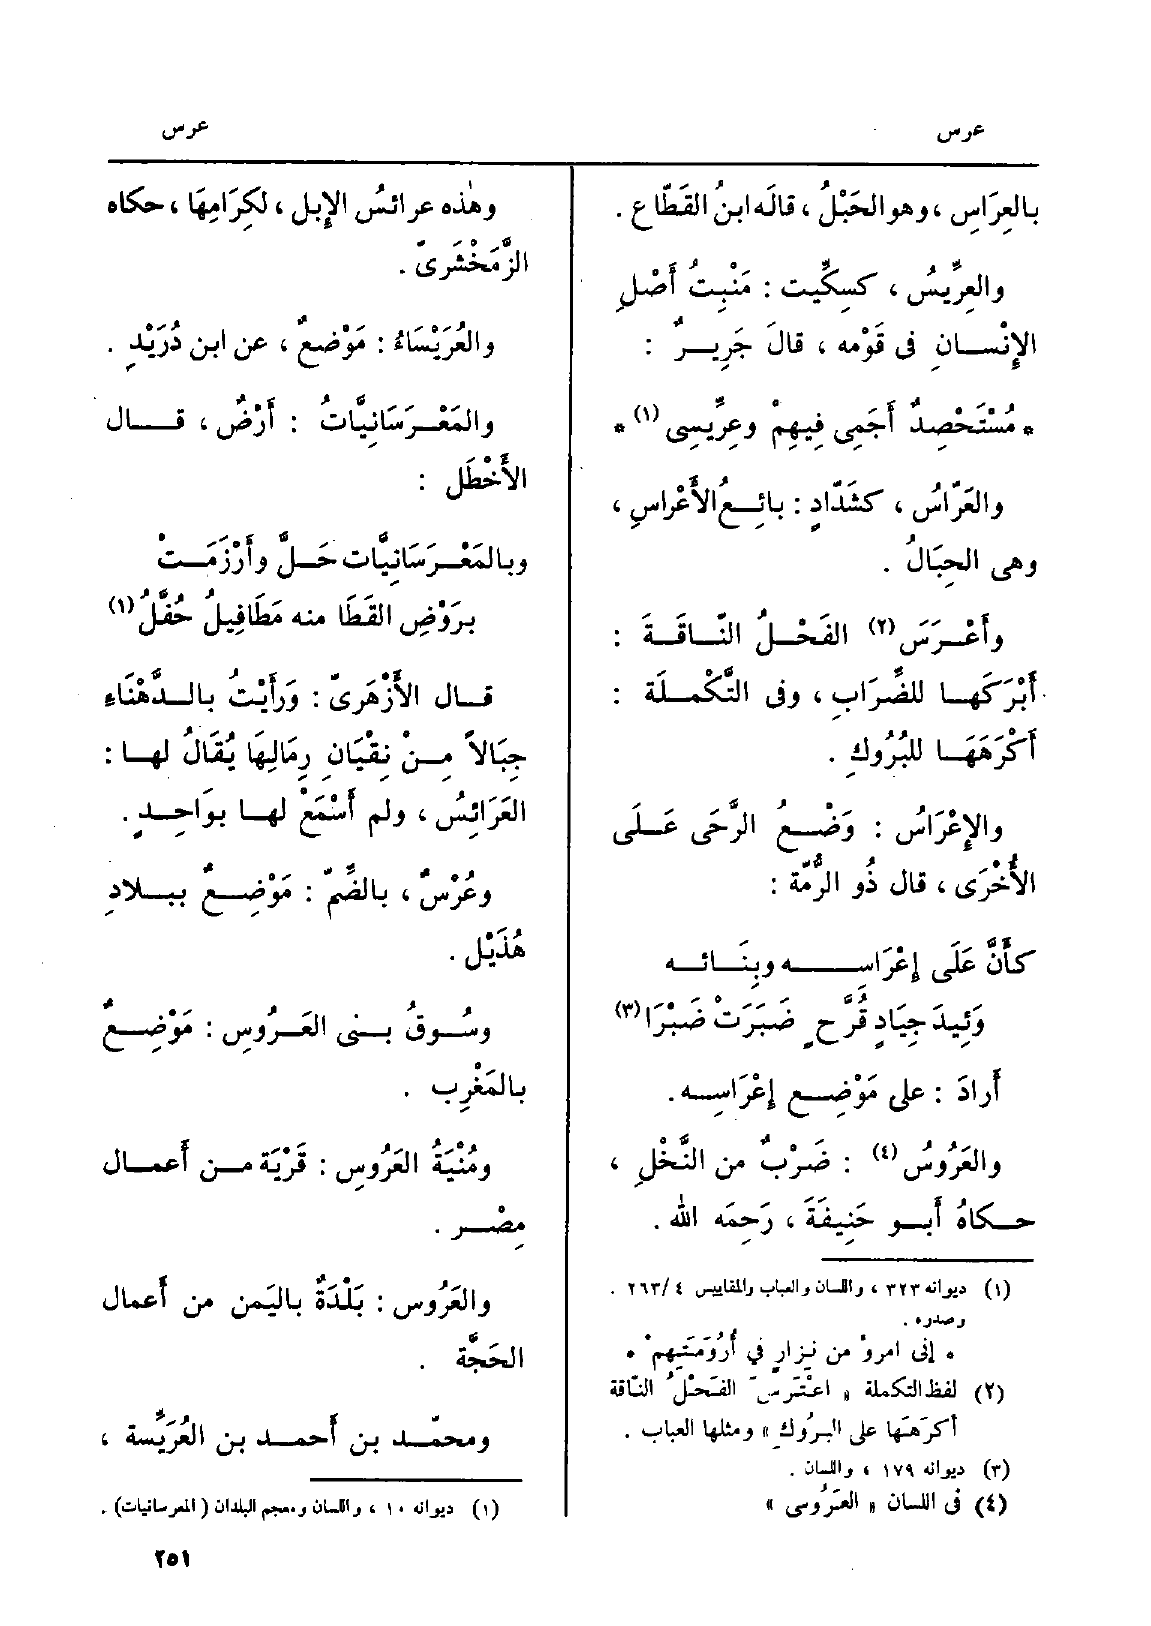 عرس
عرس
بالعِرَاسِ ، وهو الحَبْلُ ، قالَه ابنُ القَطّاعِ .
والعِرِّيسُ ، كسِكِّيت : مَنْبِتُ أَصْلِ
الإِنْسانِ فى قَوْمه ، قالَ جَرِيرٌ :
* مُسْتَحْصِدٌ أَجَمِى فِيهِمْ وعِرِّيسِى (١) *
والعَرّاسُ ، كشَدّادٍ : بائِعُ الأَعْراسِ ،
وهى الحِبَالُ .
وأَعْرَسَ (٢) الفَحْلُ النّاقَةَ :
أَبْرَكَها للضِّرَابِ ، وفى التَّكْمِلَة :
أَكْرَهَهَا للبُرُوكِ .
والإِعْرَاسُ : وَضْعُ الرَّحَى عَلَى
الأُخْرَى ، قال ذُو الرُّمَّة :
كأَنَّ عَلَى إِعْرَاسِه وبِنَائه
وَئِيدَ جِيَادٍ قُرَّحٍ ضَبَرَتْ ضَبْرَا (٣)
أَرادَ : على مَوْضِعِ إِعْرَاسِه .
والعَرُوسُ (٤) : ضَرْبٌ من النَّخْلِ ،
حكاهُ أَبو حَنِيفَةَ ، رَحِمَه الله .
(١) ديوانه ٣٢٣ ، واللسان والعباب والمقاييس ٤ /٢٦٣ .
وصدره .
* إنى امرؤ من نِزارٍ في أَرُومَتِهِمْ *
(٢) لفظ التكملة « اعْتَرَسَ الفَحْلُ النّاقة
أكرَهَها على البرُوكِ » ومثلها العباب .
(٣) ديوانه ١٧٩ ، واللسان .
(٤) فى اللسان « العَرُوسى »
وهٰذه عرائسُ الإِبل ، لكِرَامِهَا ، حكاه
الزَّمَخْشَرِىّ .
والعُرَيْسَاءُ : مَوْضعٌ ، عن ابن دُرَيْدٍ .
والمَعْرَسَانِيَّاتُ : أَرْضٌ ، قال
الأَخْطَل :
وبالمَعْرَسَانِيَّات حَلَّ وأَرْزَمَتْ
بِرَوْضِ القَطَا منه مَطَافِيلُ حُفَّلُ (١)
قال الأَزْهَرِىّ : وَرَأَيْتُ بالدَّهْنَاءِ
حِبَالاً مِنْ نِقْيَانِ رِمَالِهَا يُقَالُ لها :
العَرَائِسُ ، ولم أَسْمَعْ لها بوَاحِدٍ .
وعُرْسٌ ، بالضّمِّ : مَوْضِعٌ ببلادِ
هُذَيْل .
وسُوقُ بنى العَرُوسِ : مَوْضِعٌ
بالمَغْرِب .
ومُنْيَةُ العَرُوسِ : قَرْيَة من أَعمال
مِصْر .
والعَرُوس : بَلْدَةٌ باليَمن من أَعمال
الحَجَّة .
ومحمّد بن أَحمد بن العُرَيِّسة ،
(١) ديوانه ١٠ ، واللسان ومعجم البلدان ( المعرسانيات ) .
٢٥١